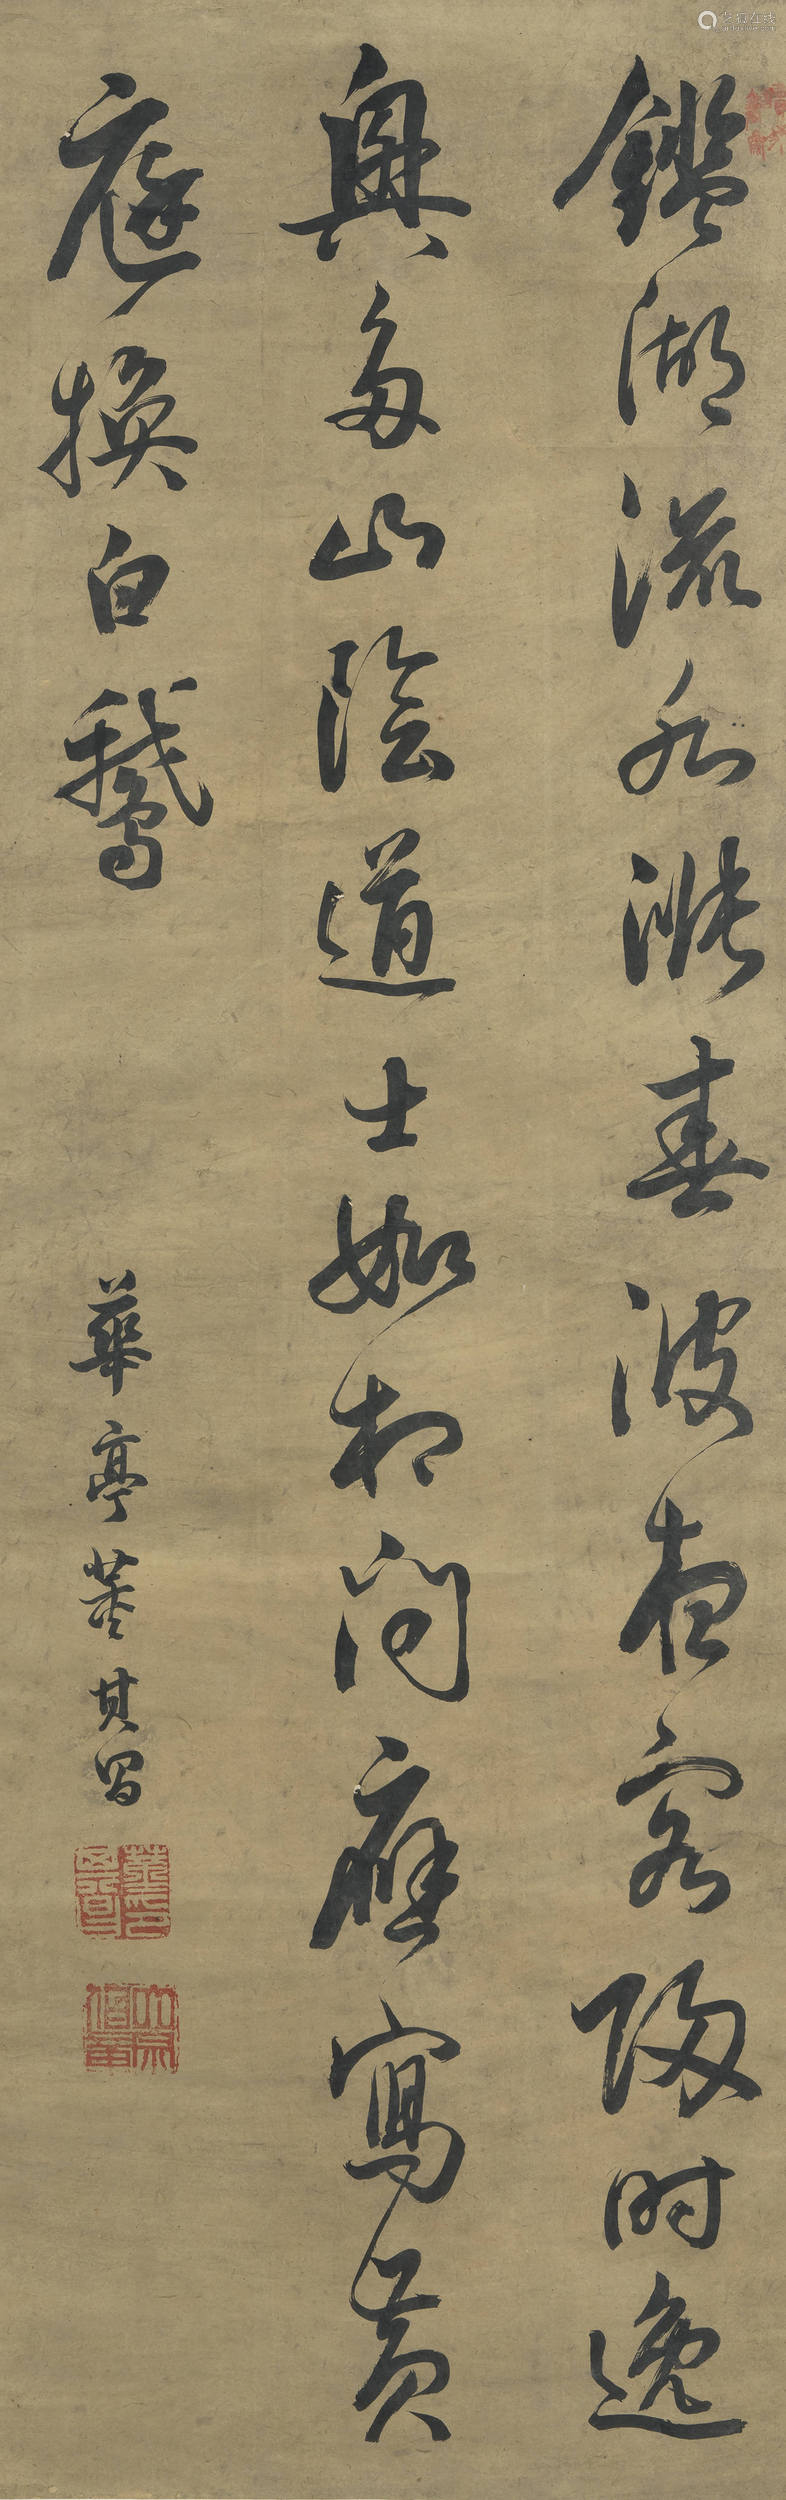 鑑湖流水漲春波有客歸時逸
興多山陰道士如相問應寫黃
庭換白鵝
華亭董其昌